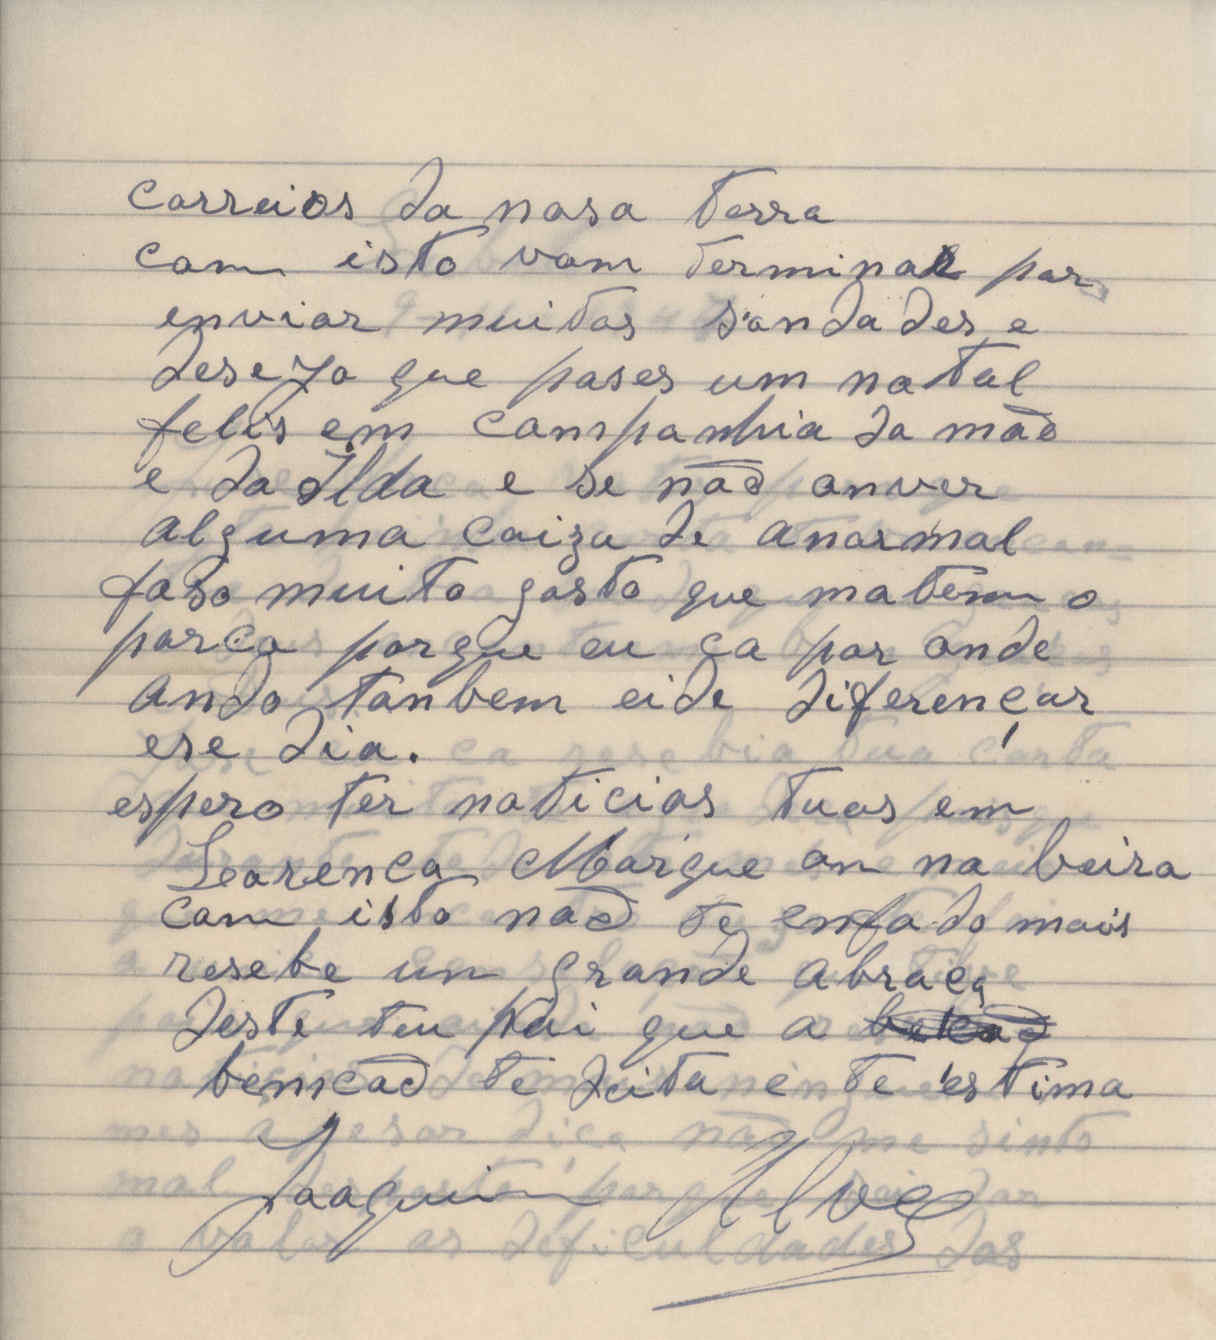 correios da nosa terra
com isto vom terminar por
enviar muitas saudades e
desejo que pases um natal
felis em companhia da mãe
e da Ilda e se não ouver
alguma coiza de anormal
faso muito gosto que matem o
porco porque eu ca por onde
ando tanbem eide diferençar
ese dia.
espero ter noticias tuas em
Lourenco Marque ou na beira
com isto não te enfado mais
resebe un grande abraço
deste teu pai que a
bencão te deita en te estima
Joaquim Alves